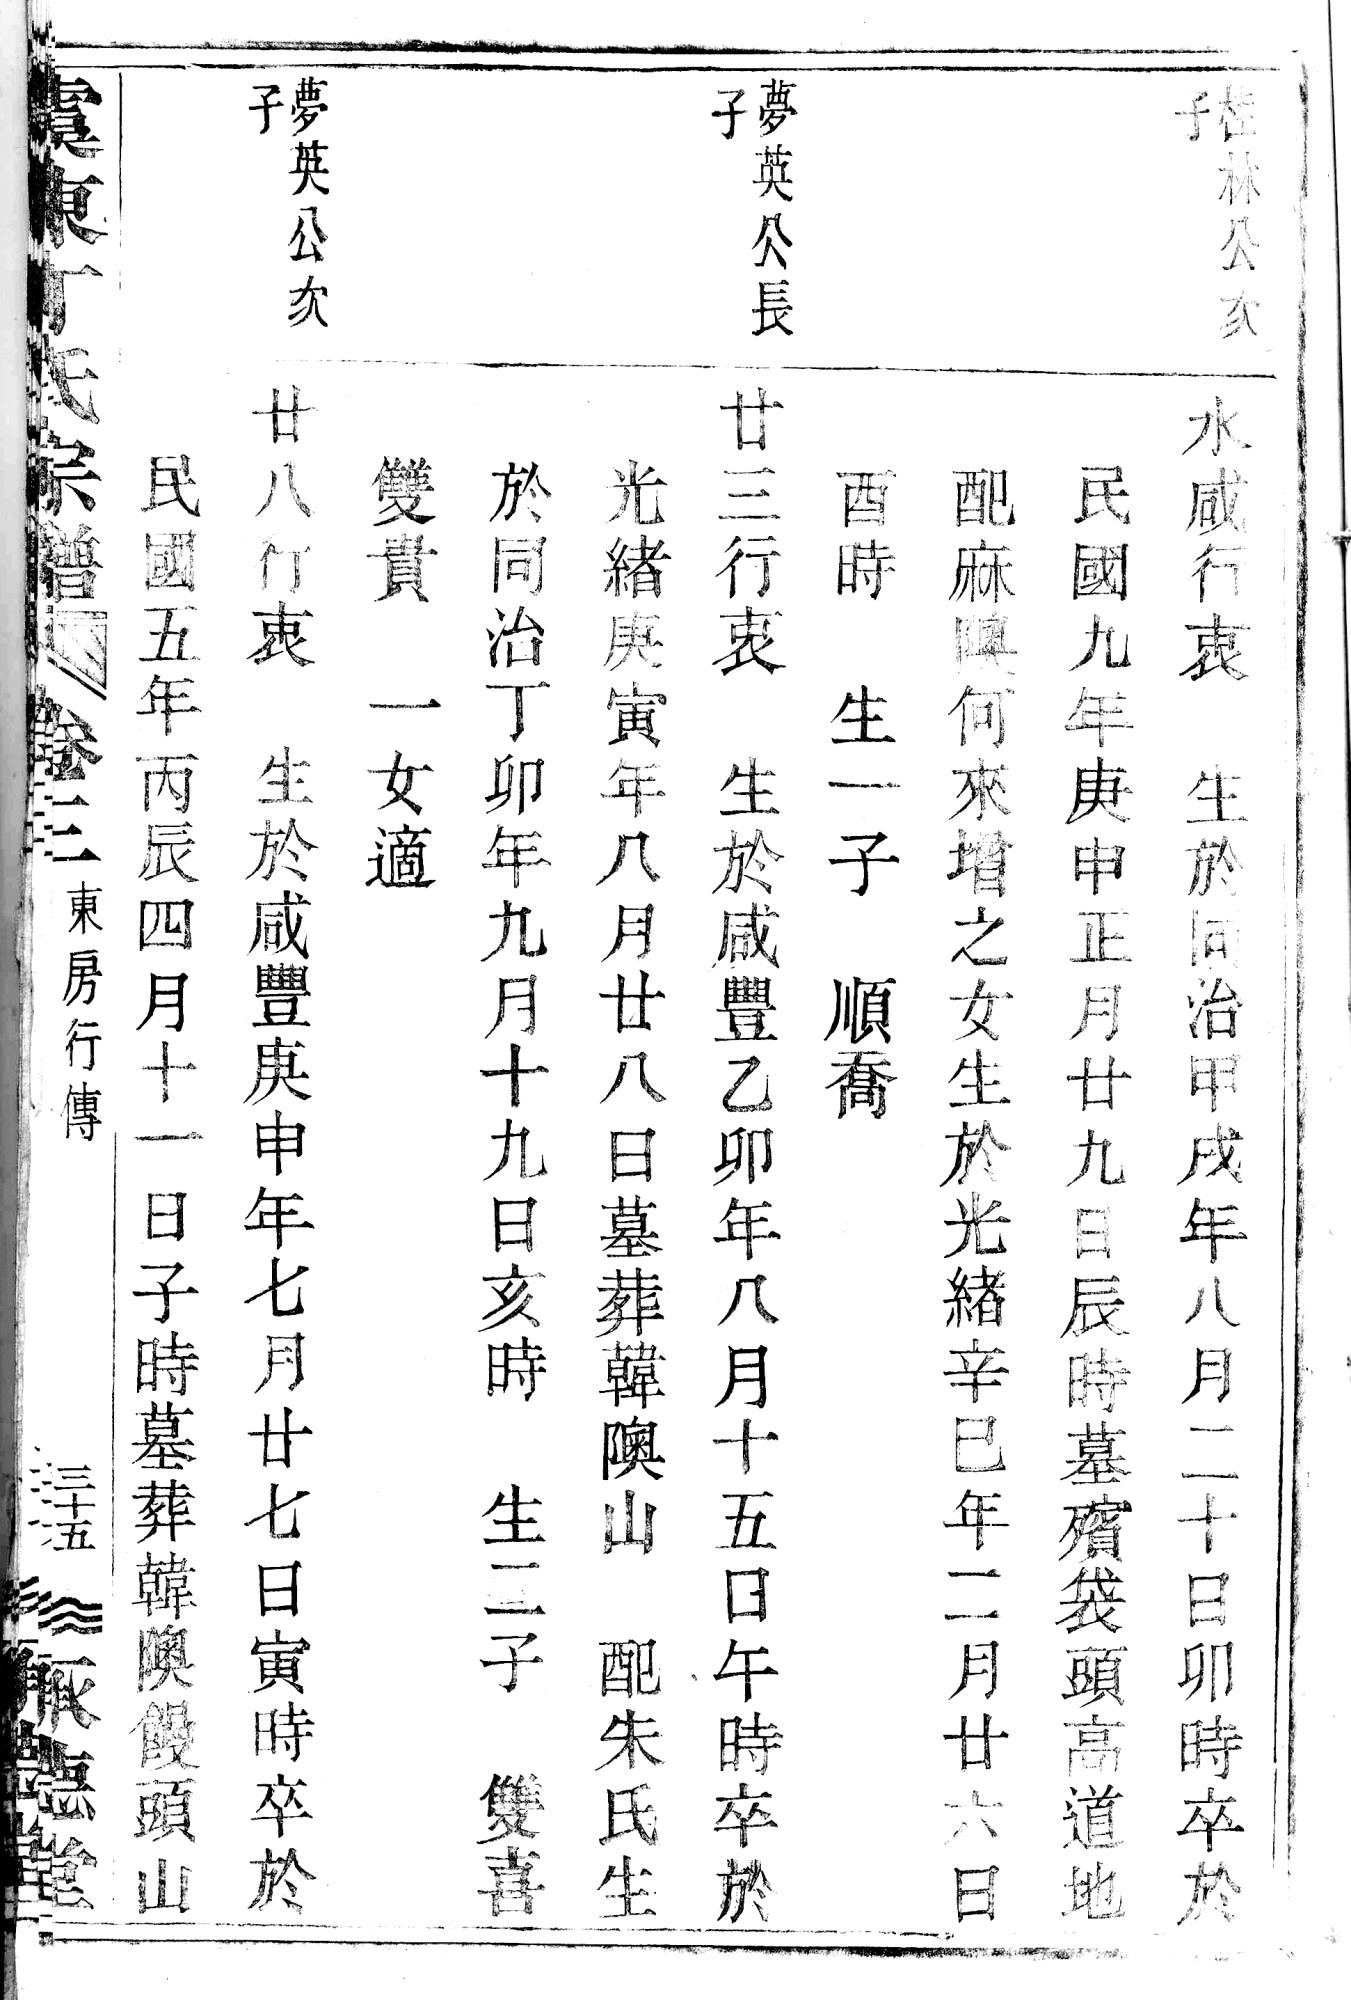 桂林公次
子
水咸行衷　生於同治甲戌年八月二十日卯時卒於
民國九年庚申正月廿九日辰時墓殯袋頭高道地
配麻隩何來增之女生於光緒辛巳年二月廿六日
酉時　生一子　順喬
夢英公長
子
廿三行衷　生於咸豐乙卯年八月十五日午時卒於
光緒庚寅年八月廿八日墓葬韓隩山　配朱氏生
於同治丁卯年九月十九日亥時　生二子　雙喜
雙貴　一女適
夢英公次
子
廿八行衷　生於咸豐庚申年七月廿七日寅時卒於
民國五年丙辰四月十一日子時墓葬韓隩饅頭山
虞東丁氏宗譜　卷三　東房行傳　三十五　承德堂